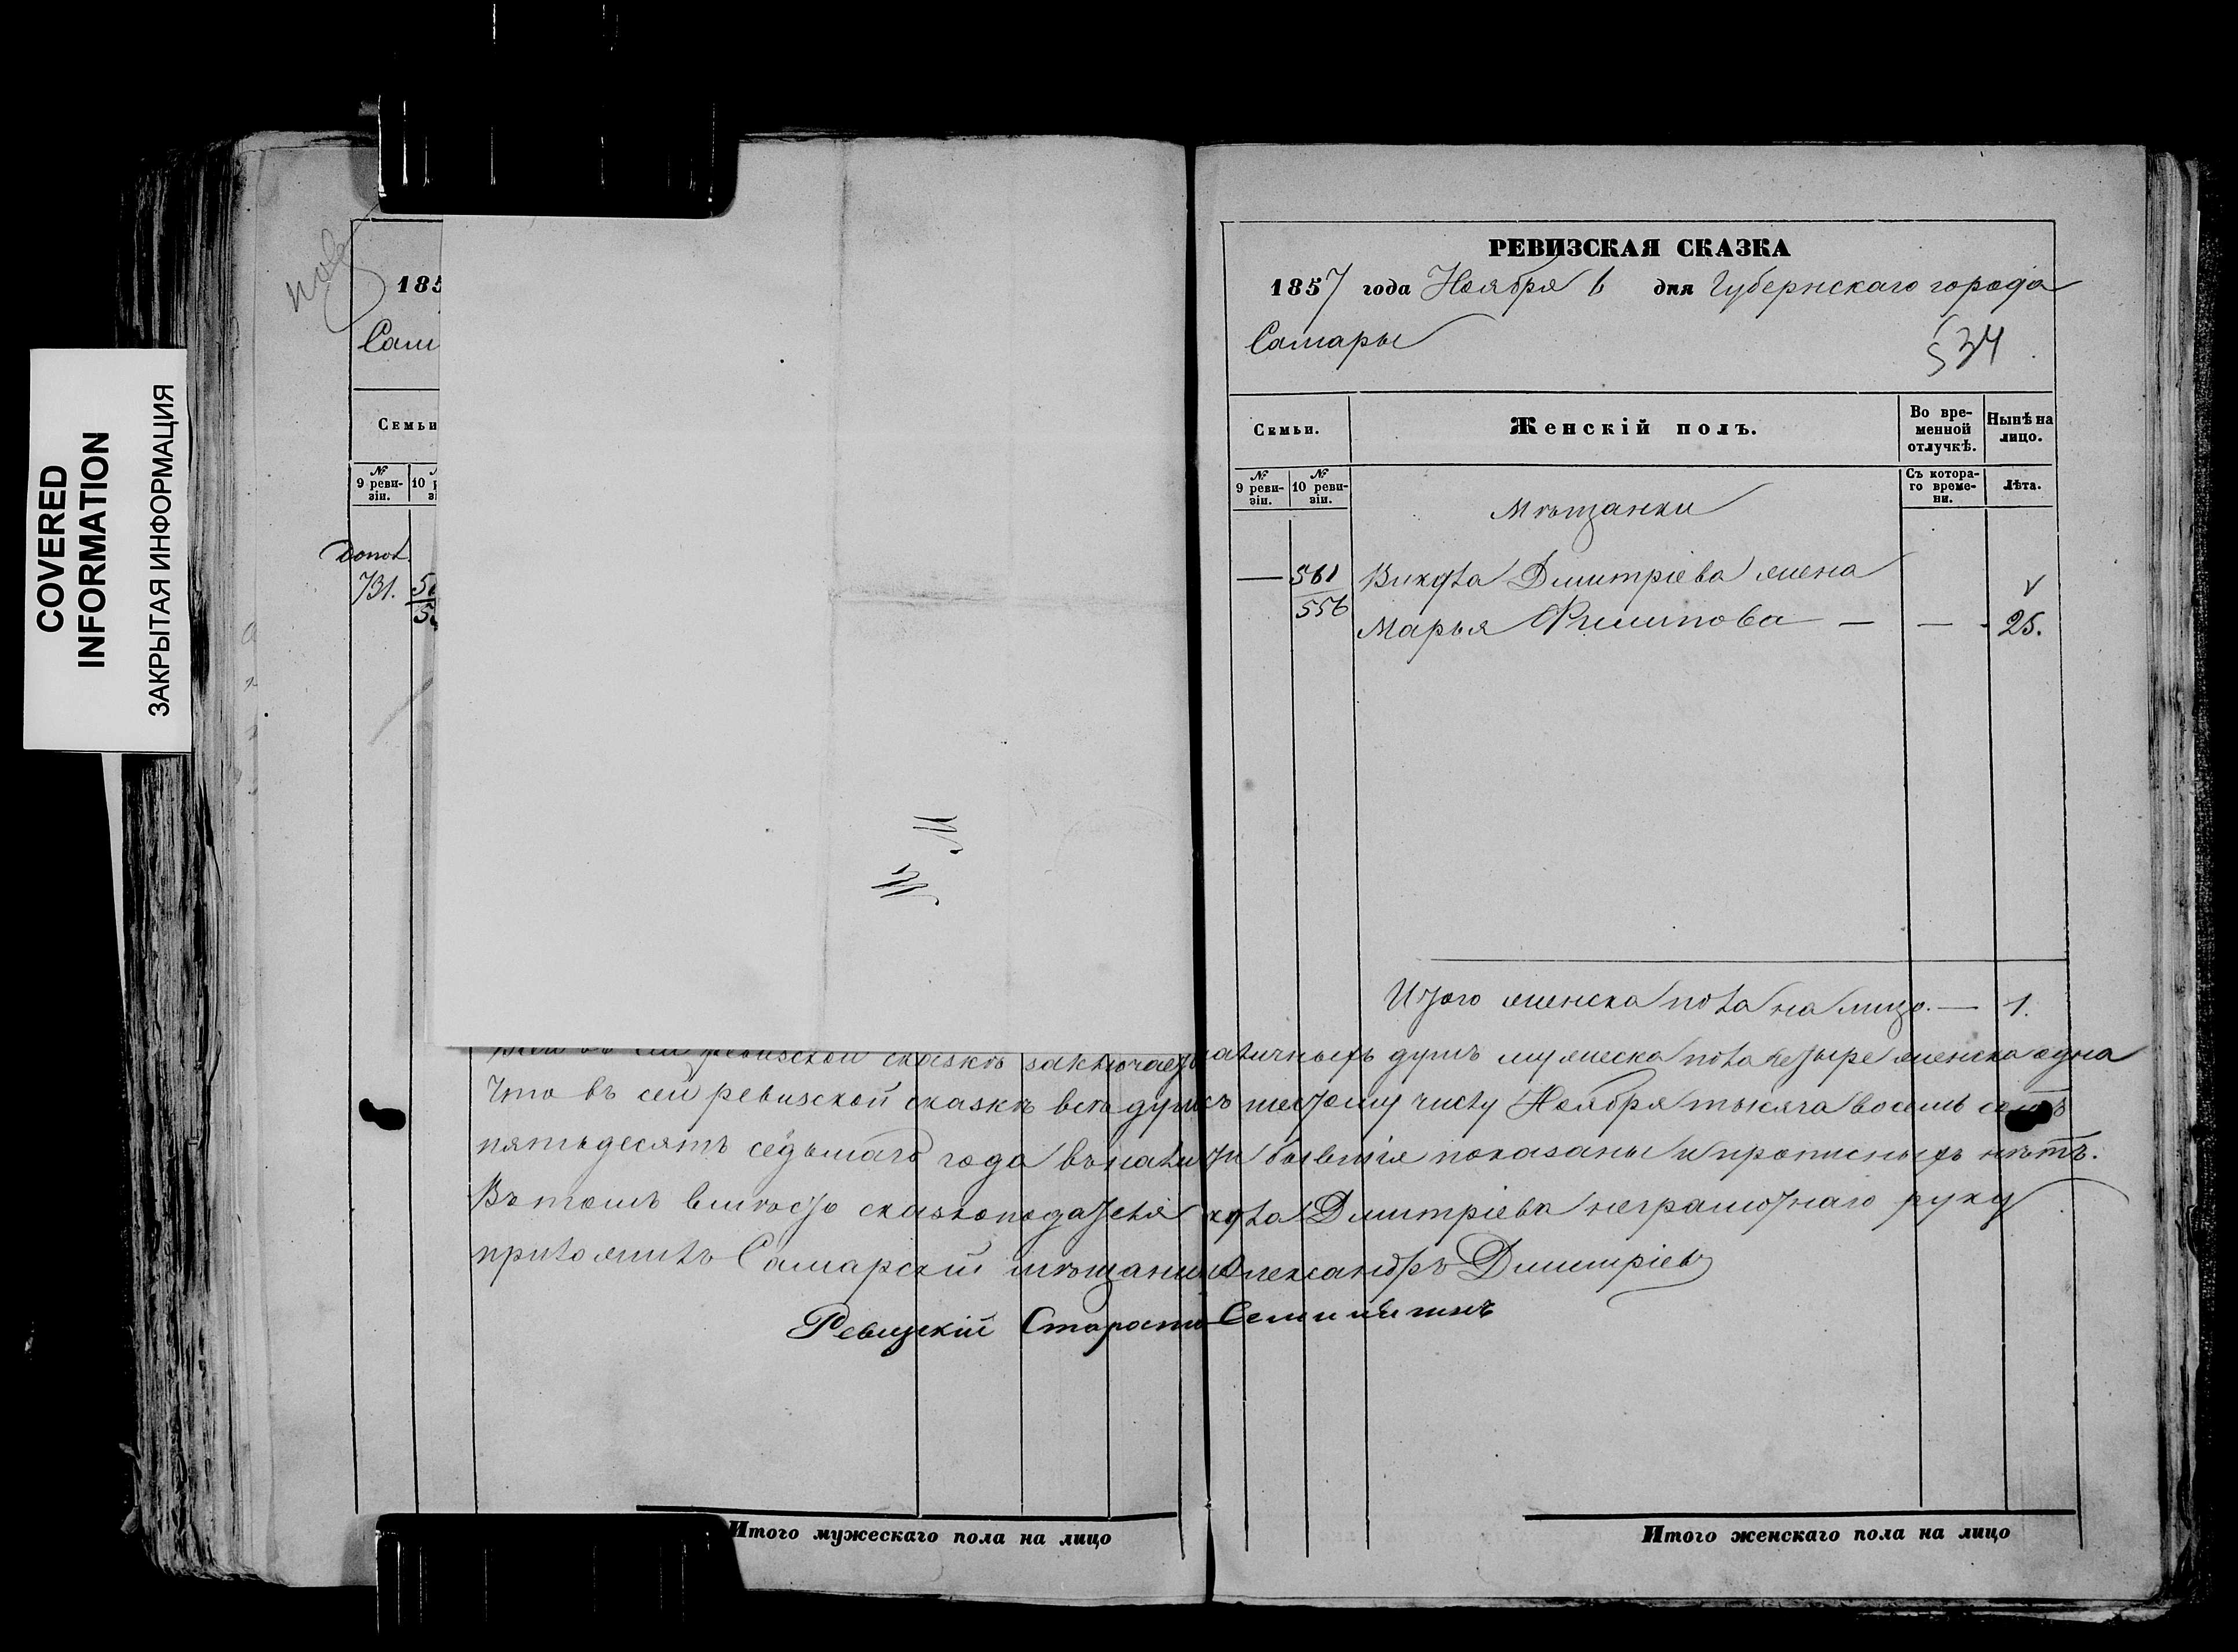 COVERED
INFORMATION
ЗАКРЫТАЯ ИНФОРМАЦИЯ
185
Сам
Семьи
№
9 реви-
зіи.
10
731.
РЕВИЗСКАЯ СКАЗКА
1857 года Ноября 6 дня Губернскаго города
Самары
534
Семьи.
Женскій полъ.
Во вре-
менной
отлучкѣ.
Нынѣ на
лицо.
№
9 реви-
зіи.
№
10 реви-
зіи.
Съ котора-
го време-
ни.
Лѣта.
Мѣщанки
— 561 Викула Дмитріева жена
556 Марья Филипова — — 25.
Итого женска пола на лицо. — 1.
сей ревизской сказкѣ заключается наличныхъ душъ мужеска пола четыре женска одна
Что въ сей ревизской сказкѣ всѣ души къ шестому числу Ноября тысяча восемь сотъ
пятьдесятъ седьмаго года въ наличности бывшія показаны и прописныхъ нѣтъ.
Въ томъ вмѣсто сказкоподателя Дмитріева неграмотнаго руку
приложилъ Самарскій мѣщанинъ Александръ Дмитріевъ
Ревизскій Староста
Итого мужескаго пола на лицо
Итого женскаго пола на лицо